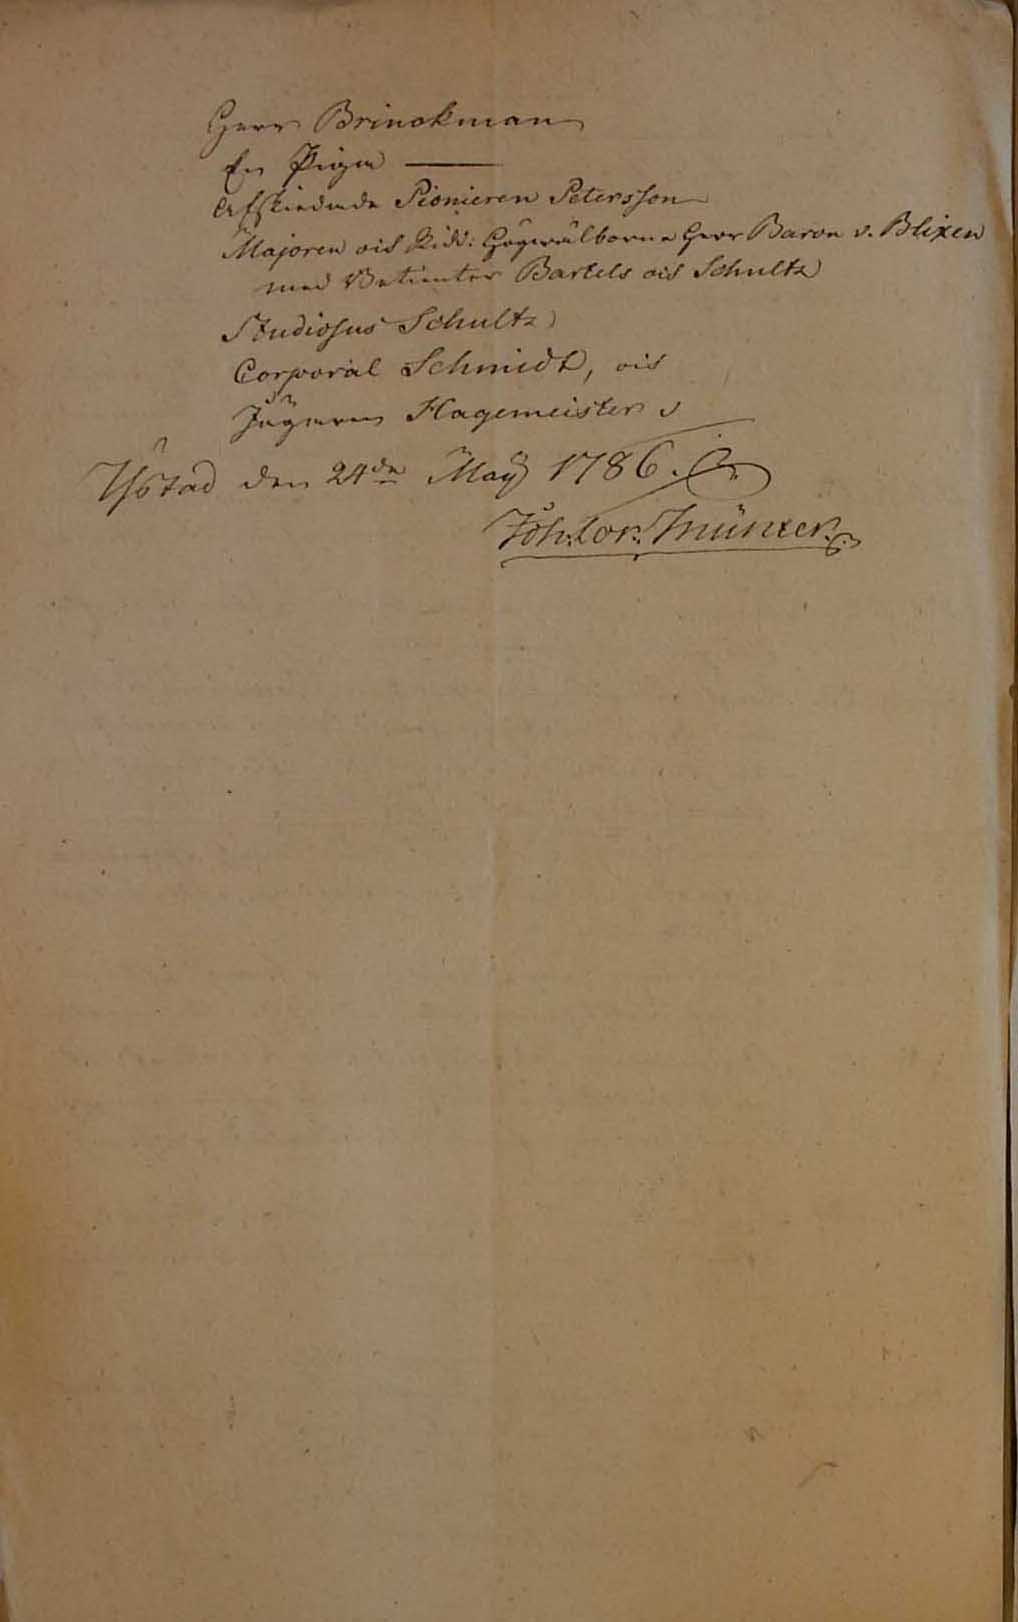 Herr Brinckman
En Piga
Afskiedade Pionieren Petersson
Majoren och Ridd: Högwälborne Herr Baron v. Blixen
med Betienter Bartels och Schultz
Studiosus Schultz
Corporal Schmidt, och
Jägaren Hagemeister
Ystad den 24de Maÿ 1786.
Joh: Lor: Münxer.